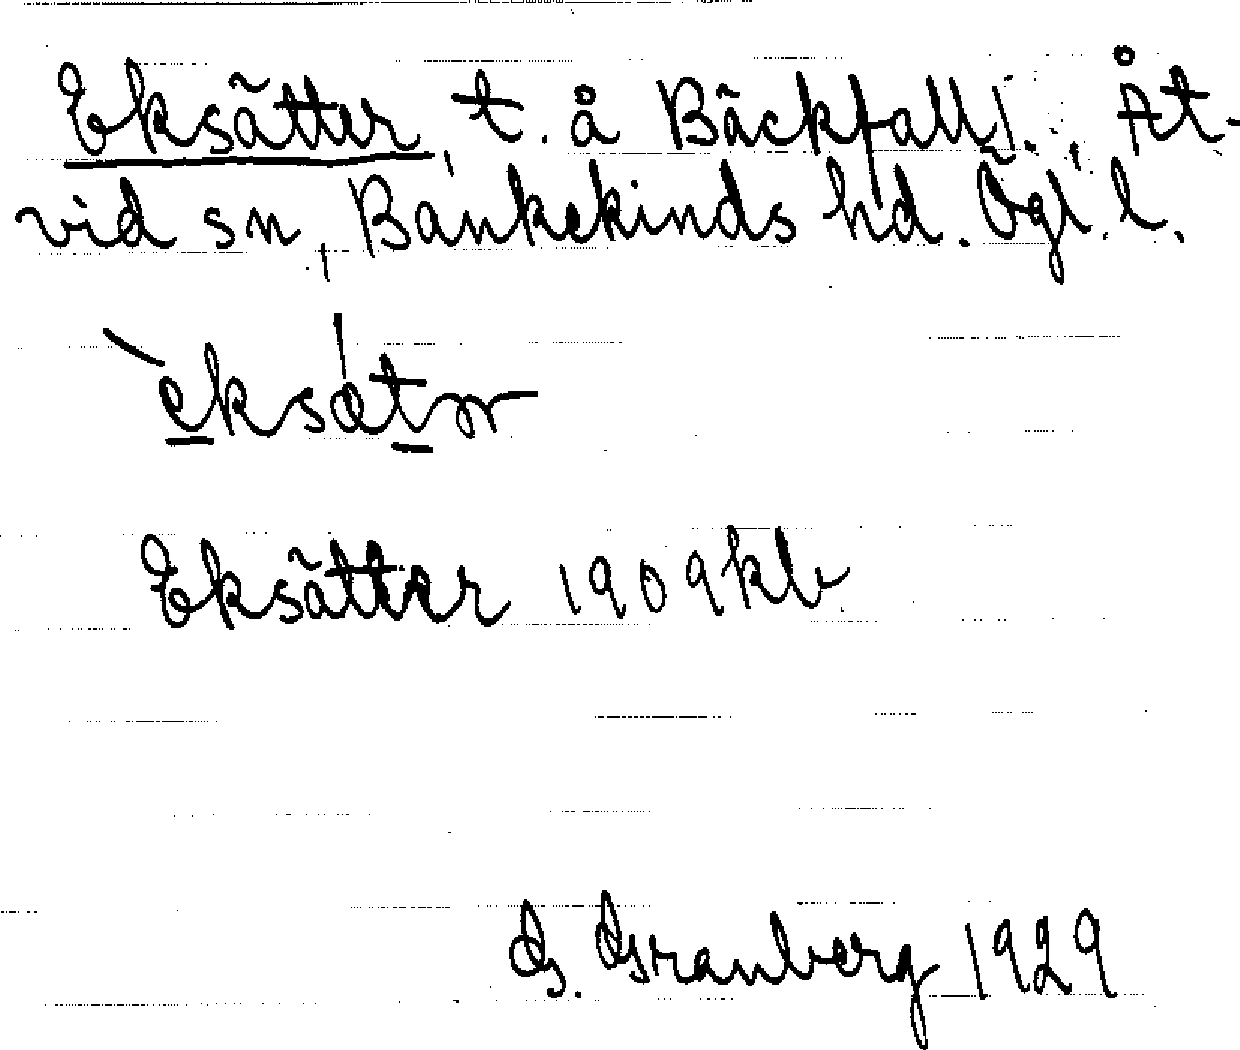 Eksätter, t. å Bäckfall, Åt-
vid sn, Bankekinds hd. Ögl. l.
Eksätter 1909 kb
G. Granberg 1929